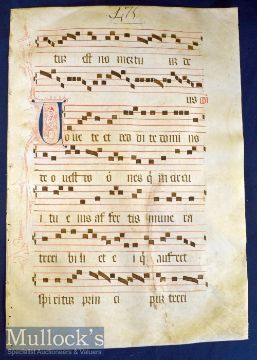 us
Uoue te et red di te domi no
de o uest ro o nes q in circu
i tu e ius af fer tis mune ra
terri bi li et e i q aufert
spi ritus prin ci terri
Mullock's
Specialist Auctioneers & Valuers